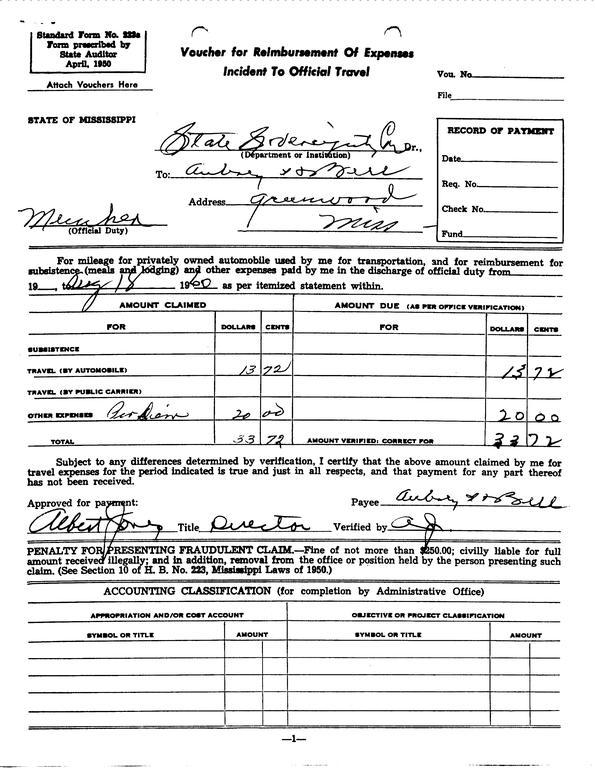 Standard Form No. 223a
Form prescribed by
State Auditor
April, 1950
Attach Vouchers Here
Voucher for Reimbursement Of Expenses
Incident To Official Travel
Vou. No.
File
STATE OF MISSISSIPPI
State Sovereignty Com Dr.,
(Department or Institution)
To: Aubrey H Bell
Address Greenwood
Miss
Member
(Official Duty)
RECORD OF PAYMENT
Date
Req. No.
Check No.
Fund
For mileage for privately owned automobile used by me for transportation, and for reimbursement for
subsistence (meals and lodging) and other expenses paid by me in the discharge of official duty from
19 , to Aug 18 1960 as per itemized statement within.
AMOUNT CLAIMED AMOUNT DUE (AS PER OFFICE VERIFICATION)
FOR DOLLARS CENTS FOR DOLLARS CENTS
SUBSISTENCE
TRAVEL (BY AUTOMOBILE) 13 72 13 72
TRAVEL (BY PUBLIC CARRIER)
OTHER EXPENSES Per Diem 20 00 20 00
TOTAL 33 72 AMOUNT VERIFIED: CORRECT FOR 33 72
Subject to any differences determined by verification, I certify that the above amount claimed by me for
travel expenses for the period indicated is true and just in all respects, and that payment for any part thereof
has not been received.
Approved for payment: Payee Aubrey H Bell
Albert Jones Title Director Verified by AJ.
PENALTY FOR PRESENTING FRAUDULENT CLAIM.—Fine of not more than $250.00; civilly liable for full
amount received illegally; and in addition, removal from the office or position held by the person presenting such
claim. (See Section 10 of H. B. No. 223, Mississippi Laws of 1950.)
ACCOUNTING CLASSIFICATION (for completion by Administrative Office)
APPROPRIATION AND/OR COST ACCOUNT OBJECTIVE OR PROJECT CLASSIFICATION
SYMBOL OR TITLE AMOUNT SYMBOL OR TITLE AMOUNT
—1—